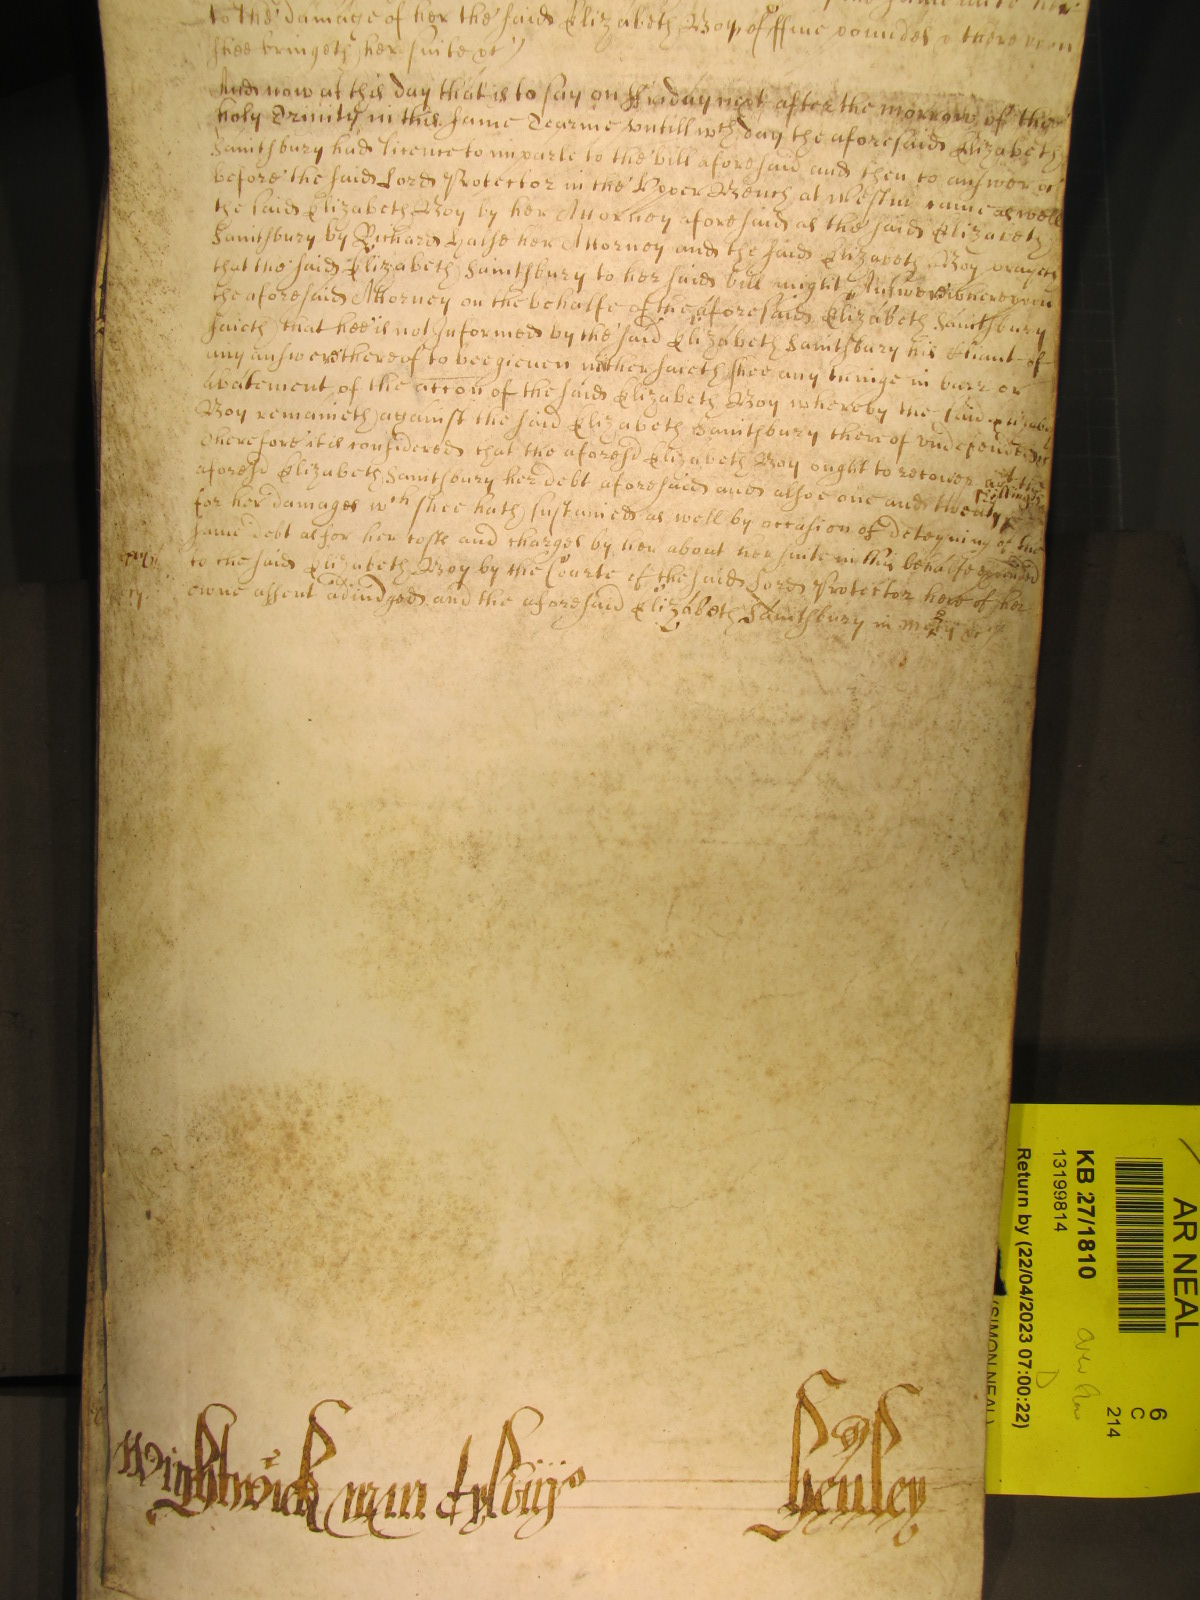 to the damage of her the said Elizabeth Boy of ffiue poundes & there vpon
shee bringeth her suite &c
And now at this day that is to say on ffriday next after the morrow of the
holy Trinity in this same Tearme vntill wch day the aforesaid Elizabeth
Saintsbury had licence to imparle to the bill aforesaid and then to answer &c
before the said Lord Protector in the Vpper Bench at Westm came as well
the said Elizabeth Boy by her Attorney aforesaid as the said Elizabeth
Saintsbury by Richard Halse her Attorney and the said Elizabeth Boy prayeth
that the said Elizabeth Saintsbury to her said bill might Answer wherevpon
the aforesaid Attorney on the behalfe of the aforesaid Elizabeth Saintsbury
saieth that hee is not Informed by the said Elizabeth Saintsbury his Cliant of
any answere thereof to bee giuen neither saieth shee any thinge in barr or
abatement of the accon of the said Elizabeth Boy whereby the said Elizabeth
Boy remaineth against the said Elizabeth Saintsbury thereof vndefended
Therefore it is considered that the aforesd Elizabeth Boy ought to recover agt the
aforesd Elizabeth Saintsbury her debt aforesaid and alsoe one and twenty shillings
for her damages wch shee hath sustained as well by occasion of deteyning of the
same debt as for her costs and charges by her about her suite in this behalfe expended
to the said Elizabeth Boy by the Courte of the said Lord Protector here of her
owne assent adiudged and the aforesaid Elizabeth Saintsbury in mercy &c
Wightwick
Henley
AR NEAL
6
C
214
KB 27/1810
13199814
Return by (22/04/2023 07:00:22)
(SIMON NEAL)